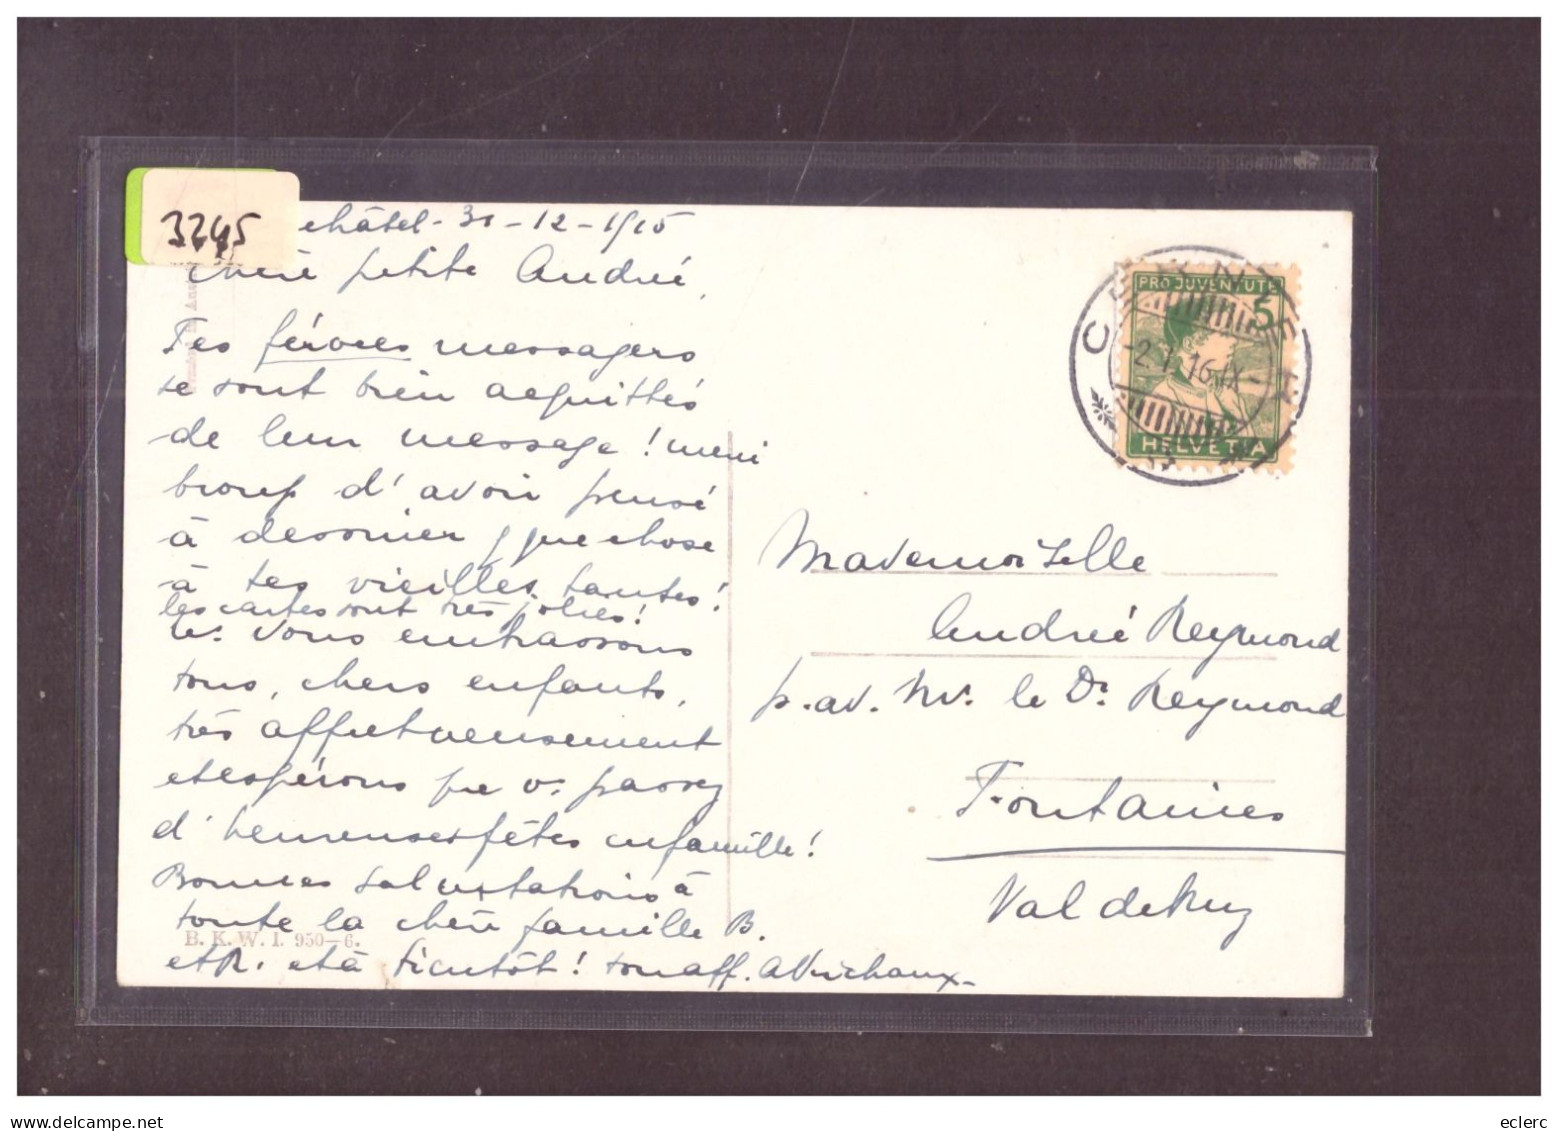 3245
châtel - 31 - 12 - 1915
Chère petite Andrée,
Tes féroces messagers
se sont bien acquittés
de leur message ! merci
bcoup d'avoir pensé
à dessiner qque chose
à tes vieilles tantes !
les cartes sont très jolies !
ns. vous embrassons
tous, chers enfants,
très affectueusement
et espérons que vs. passez
d'heureuses fêtes en famille !
Bonnes salutations à
toute la chère famille B.
et R. et à bientôt ! ton aff.
B. K. W. I. 950-6.
PRO JUVENTUTE
5
HELVETIA
CERNIER
-2.I.16.IX-
Mademoiselle
Andrée Reymond
p. ad. Mr. le Dr. Reymond
Fontaines
Val de Ruz
eclerc